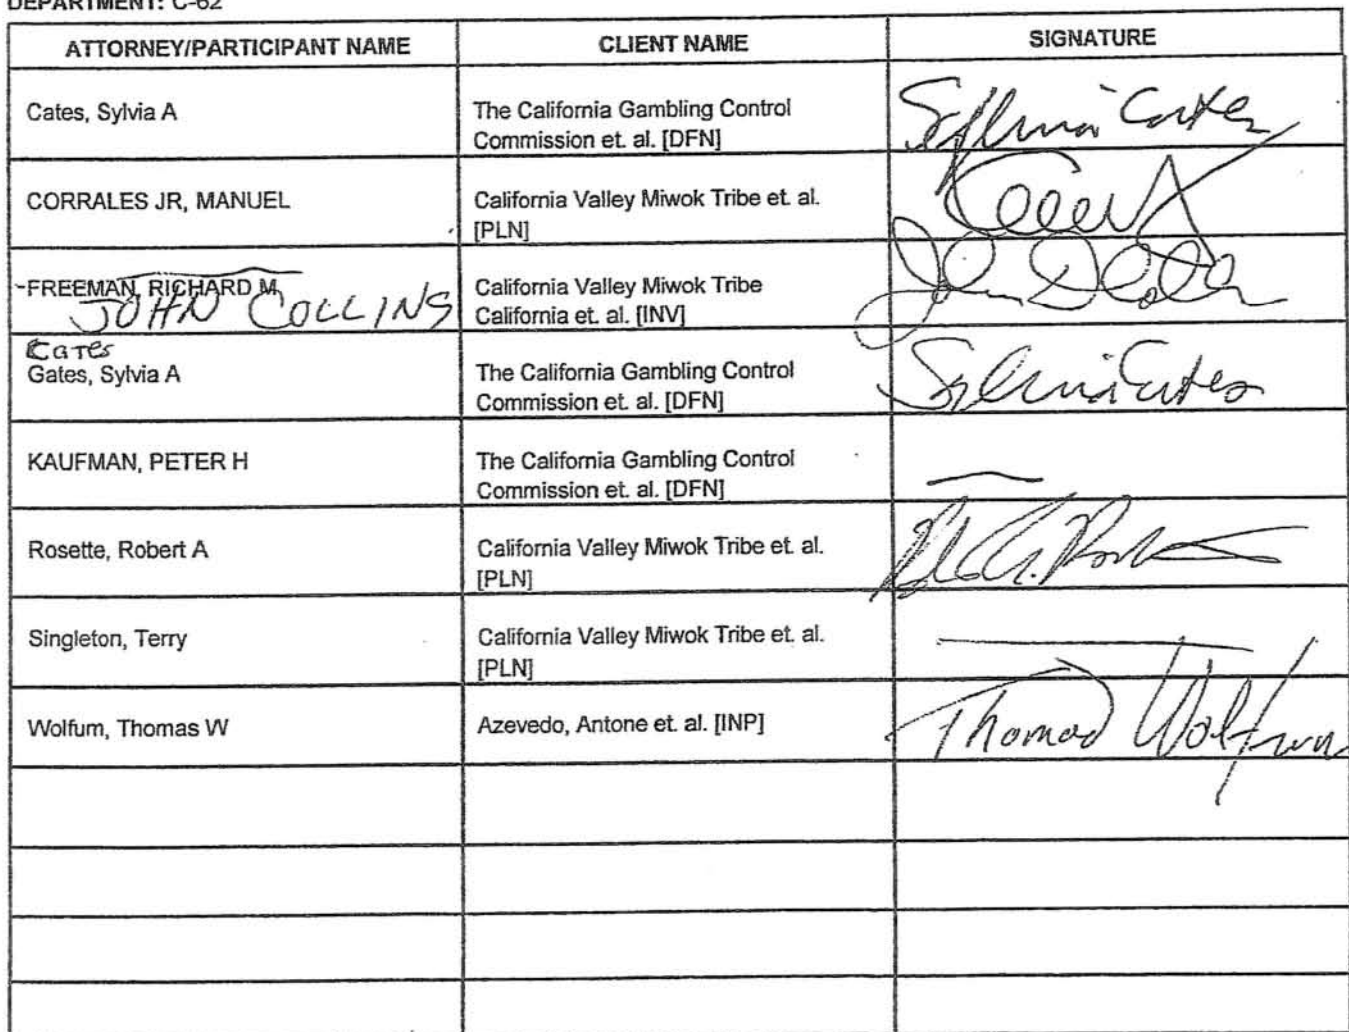 DEPARTMENT: C-62
ATTORNEY/PARTICIPANT NAME CLIENT NAME SIGNATURE
Cates, Sylvia A
The California Gambling Control
Commission et. al. [DFN]
Sylvia Cates
CORRALES JR, MANUEL
California Valley Miwok Tribe et. al.
[PLN]
FREEMAN, RICHARD M
JOHN COLLINS
California Valley Miwok Tribe
California et. al. [INV]
Cates
Gates, Sylvia A
The California Gambling Control
Commission et. al. [DFN]
Sylvia Cates
KAUFMAN, PETER H
The California Gambling Control
Commission et. al. [DFN]
Rosette, Robert A
California Valley Miwok Tribe et. al.
[PLN]
Singleton, Terry
California Valley Miwok Tribe et. al.
[PLN]
Wolfum, Thomas W
Azevedo, Antone et. al. [INP]
Thomas Wolfrum